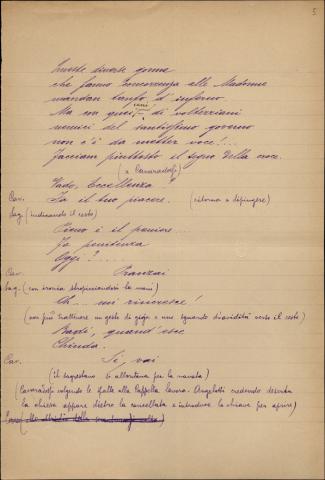 5
Queste diverse gonne
che fanno concorrenza alle Madonne
mandan tanfo d'inferno.
Ma con quei cani di volterriani
nemici del santissimo governo
non c'è da metter voce!...
Facciam piuttosto il segno della croce.
(a Cavaradossi)
Vado, Eccellenza?
Cav. Fa il tuo piacere. (ritorna a dipingere)
Sag. (indicando il cesto)
Pieno è il paniere.
Fa penitenza
Oggi?.....
Cav. Pranzai
Sag. (con ironia stropicciandosi le mani)
Oh... mi rincresce!
(non può trattenere un gesto di gioja e uno sguardo d'avidità verso il cesto)
Badi, quand'esce
Chiuda.
Cav. Sì, vai
(il sagrestano s'allontana per la navata)
(Cavaradossi volgendo le spalle alla Cappella lavora. Angelotti credendo deserta
la chiesa appare dietro la cancellata e introduce la chiave per aprire)